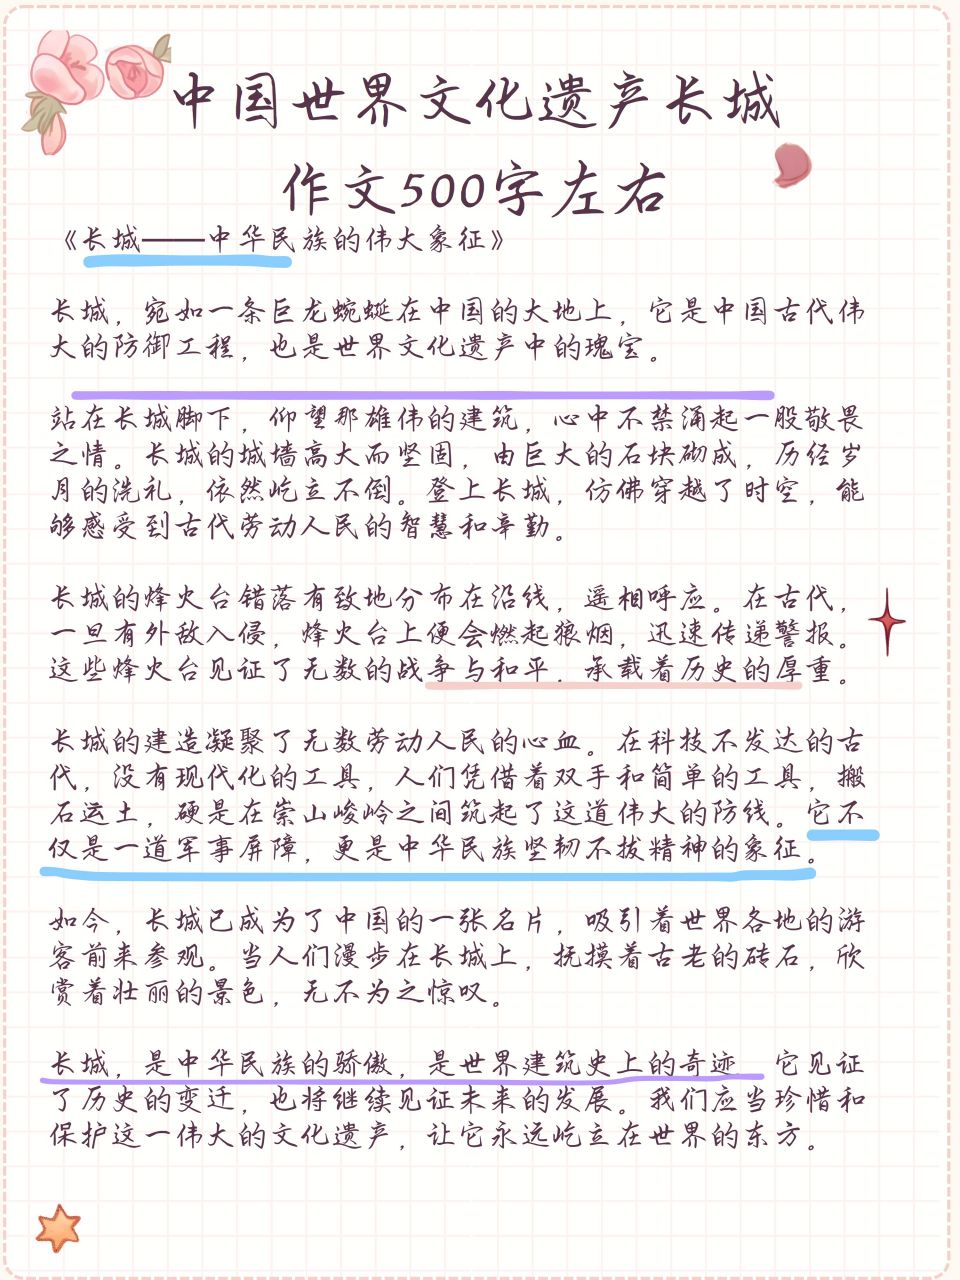 中国世界文化遗产长城
作文500字左右
《长城——中华民族的伟大象征》
长城，宛如一条巨龙蜿蜒在中国的大地上，它是中国古代伟
大的防御工程，也是世界文化遗产中的瑰宝。
站在长城脚下，仰望那雄伟的建筑，心中不禁涌起一股敬畏
之情。长城的城墙高大而坚固，由巨大的石块砌成，历经岁
月的洗礼，依然屹立不倒。登上长城，仿佛穿越了时空，能
够感受到古代劳动人民的智慧和辛勤。
长城的烽火台错落有致地分布在沿线，遥相呼应。在古代，
一旦有外敌入侵，烽火台上便会燃起狼烟，迅速传递警报。
这些烽火台见证了无数的战争与和平，承载着历史的厚重。
长城的建造凝聚了无数劳动人民的心血。在科技不发达的古
代，没有现代化的工具，人们凭借着双手和简单的工具，搬
石运土，硬是在崇山峻岭之间筑起了这道伟大的防线。它不
仅是一道军事屏障，更是中华民族坚韧不拔精神的象征。
如今，长城已成为了中国的一张名片，吸引着世界各地的游
客前来参观。当人们漫步在长城上，抚摸着古老的砖石，欣
赏着壮丽的景色，无不为之惊叹。
长城，是中华民族的骄傲，是世界建筑史上的奇迹　它见证
了历史的变迁，也将继续见证未来的发展。我们应当珍惜和
保护这一伟大的文化遗产，让它永远屹立在世界的东方。